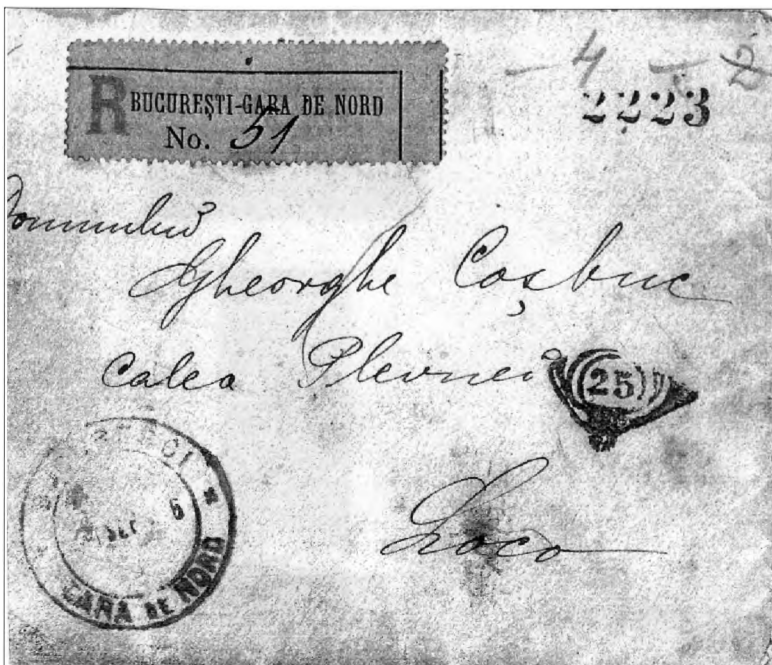 — 4 —
R BUCUREȘTI-GARA DE NORD
No. 51
2223
Domnului
Gheorghe Coșbuc
Calea Plevnei
25
Loco
6
GARA DE NORD